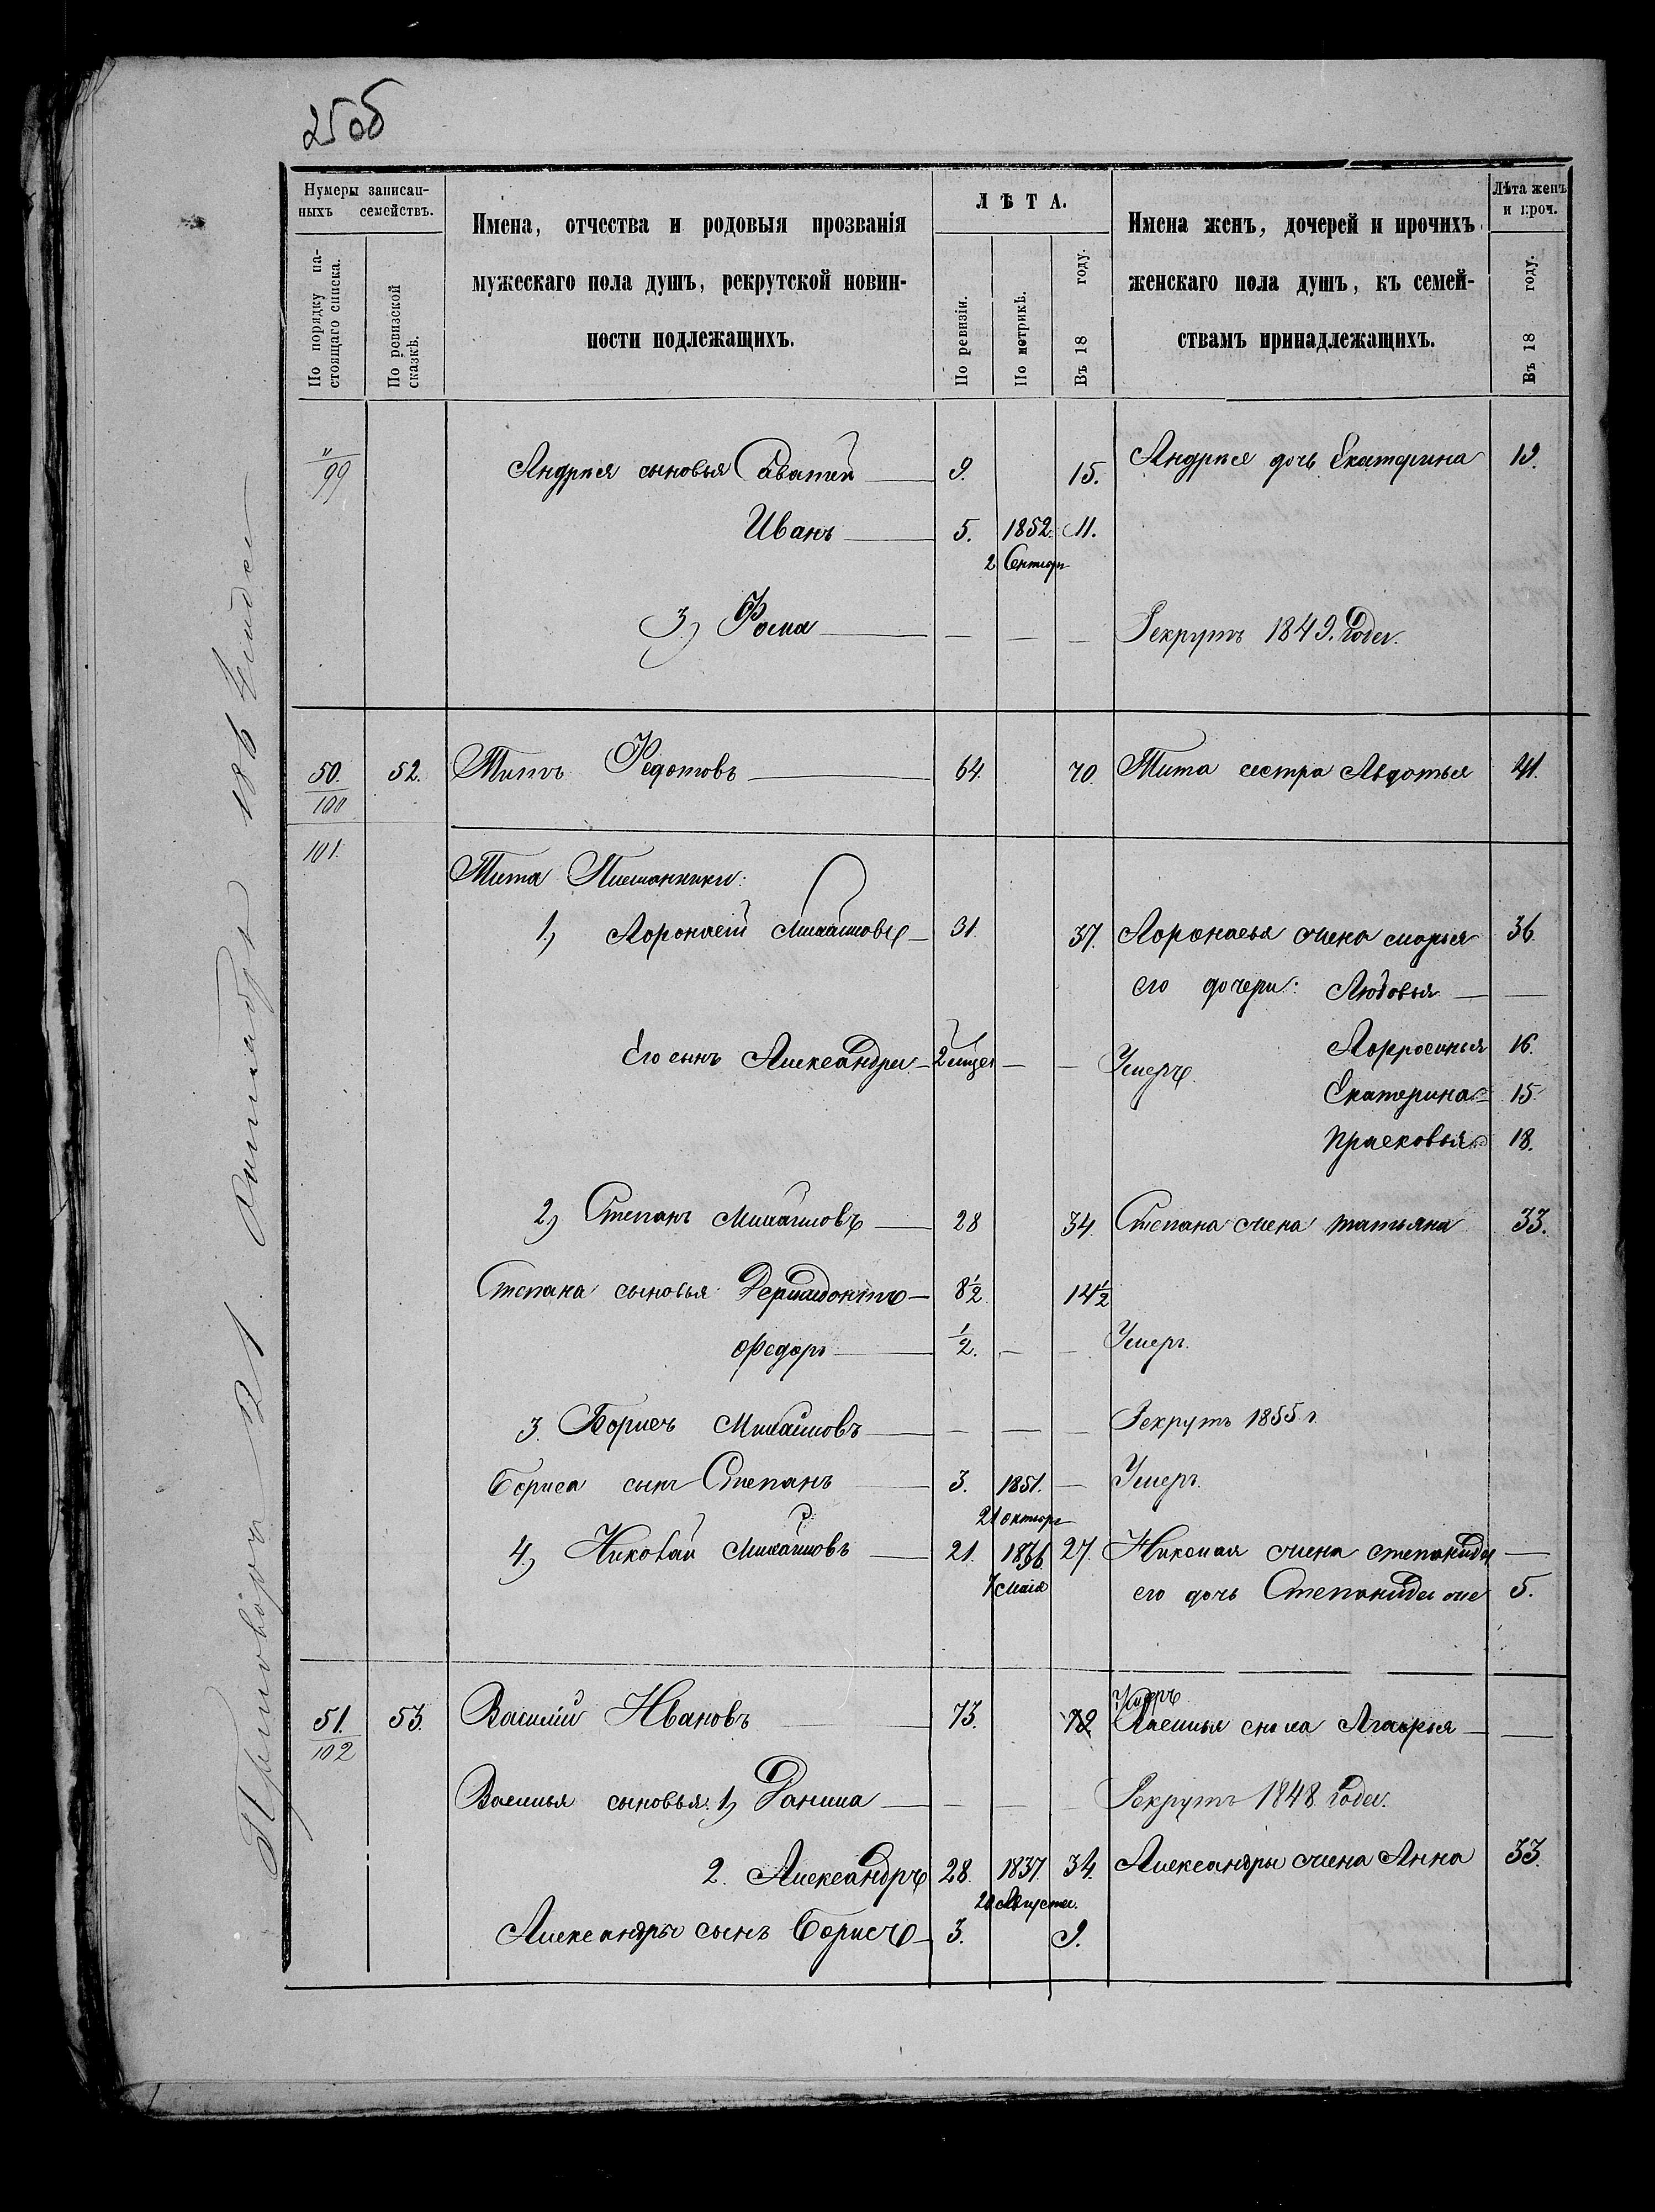 25об
Нумеры записан-
ныхъ семействъ.
По порядку на-
стоящаго списка.
По ревизской
сказкѣ.
Имена, отчества и родовыя прозванія
мужескаго пола душъ, рекрутской повин-
ности подлежащихъ.
ЛѢТА.
По ревизіи.
По метрикѣ.
Въ 18 году.
Имена женъ, дочерей и прочихъ
женскаго пола душъ, къ семей-
ствамъ принадлежащихъ.
Лѣта женъ
и проч.
Въ 18 году.
"/99 Андрея сыновья Саватей 9. 15. Андрея дочь Екатерина 19.
Иванъ 5. 1852. 11.
2 Сентяр
3) Фома — — — Рекрутъ 1849. года.
50./100 52. Титъ Федотовъ 64. 70. Тита сестра Авдотья 41.
101.
Тита Племянники:
1, Афонасій Михайловъ 31 37. Афонасья жена Марья 36.
его дочери: Любовья —
Его сынъ Александръ 2 мѣсца — — Умеръ. Афросинья 16.
Екатерина 15.
Прасковья 18.
2, Степанъ Михайловъ 28 34. Степана жена Татьяна 33.
Степана сыновья Ферапонтъ 8½ 14½
Федоръ ½. — — Умеръ.
3. Борисъ Михайловъ — — — Рекрутъ 1855 г.
Бориса сынъ Степанъ 3. 1851. — Умеръ.
21 октяр
4, Николай Михайловъ 21. 1836. 27. Николая жена Степанида —
7 Маія его дочь Степанида же 5.
51./102 53. Василій Ивановъ 73. 79 Умеръ Василья жена Агафья —
Василья сыновья: 1, Данила — — — Рекрутъ 1848 года.
2. Александръ 28. 1837. 34. Александры жена Анна 33.
20 Августа.
Александры сынъ Борисъ 3. 9.
21 186 4 года